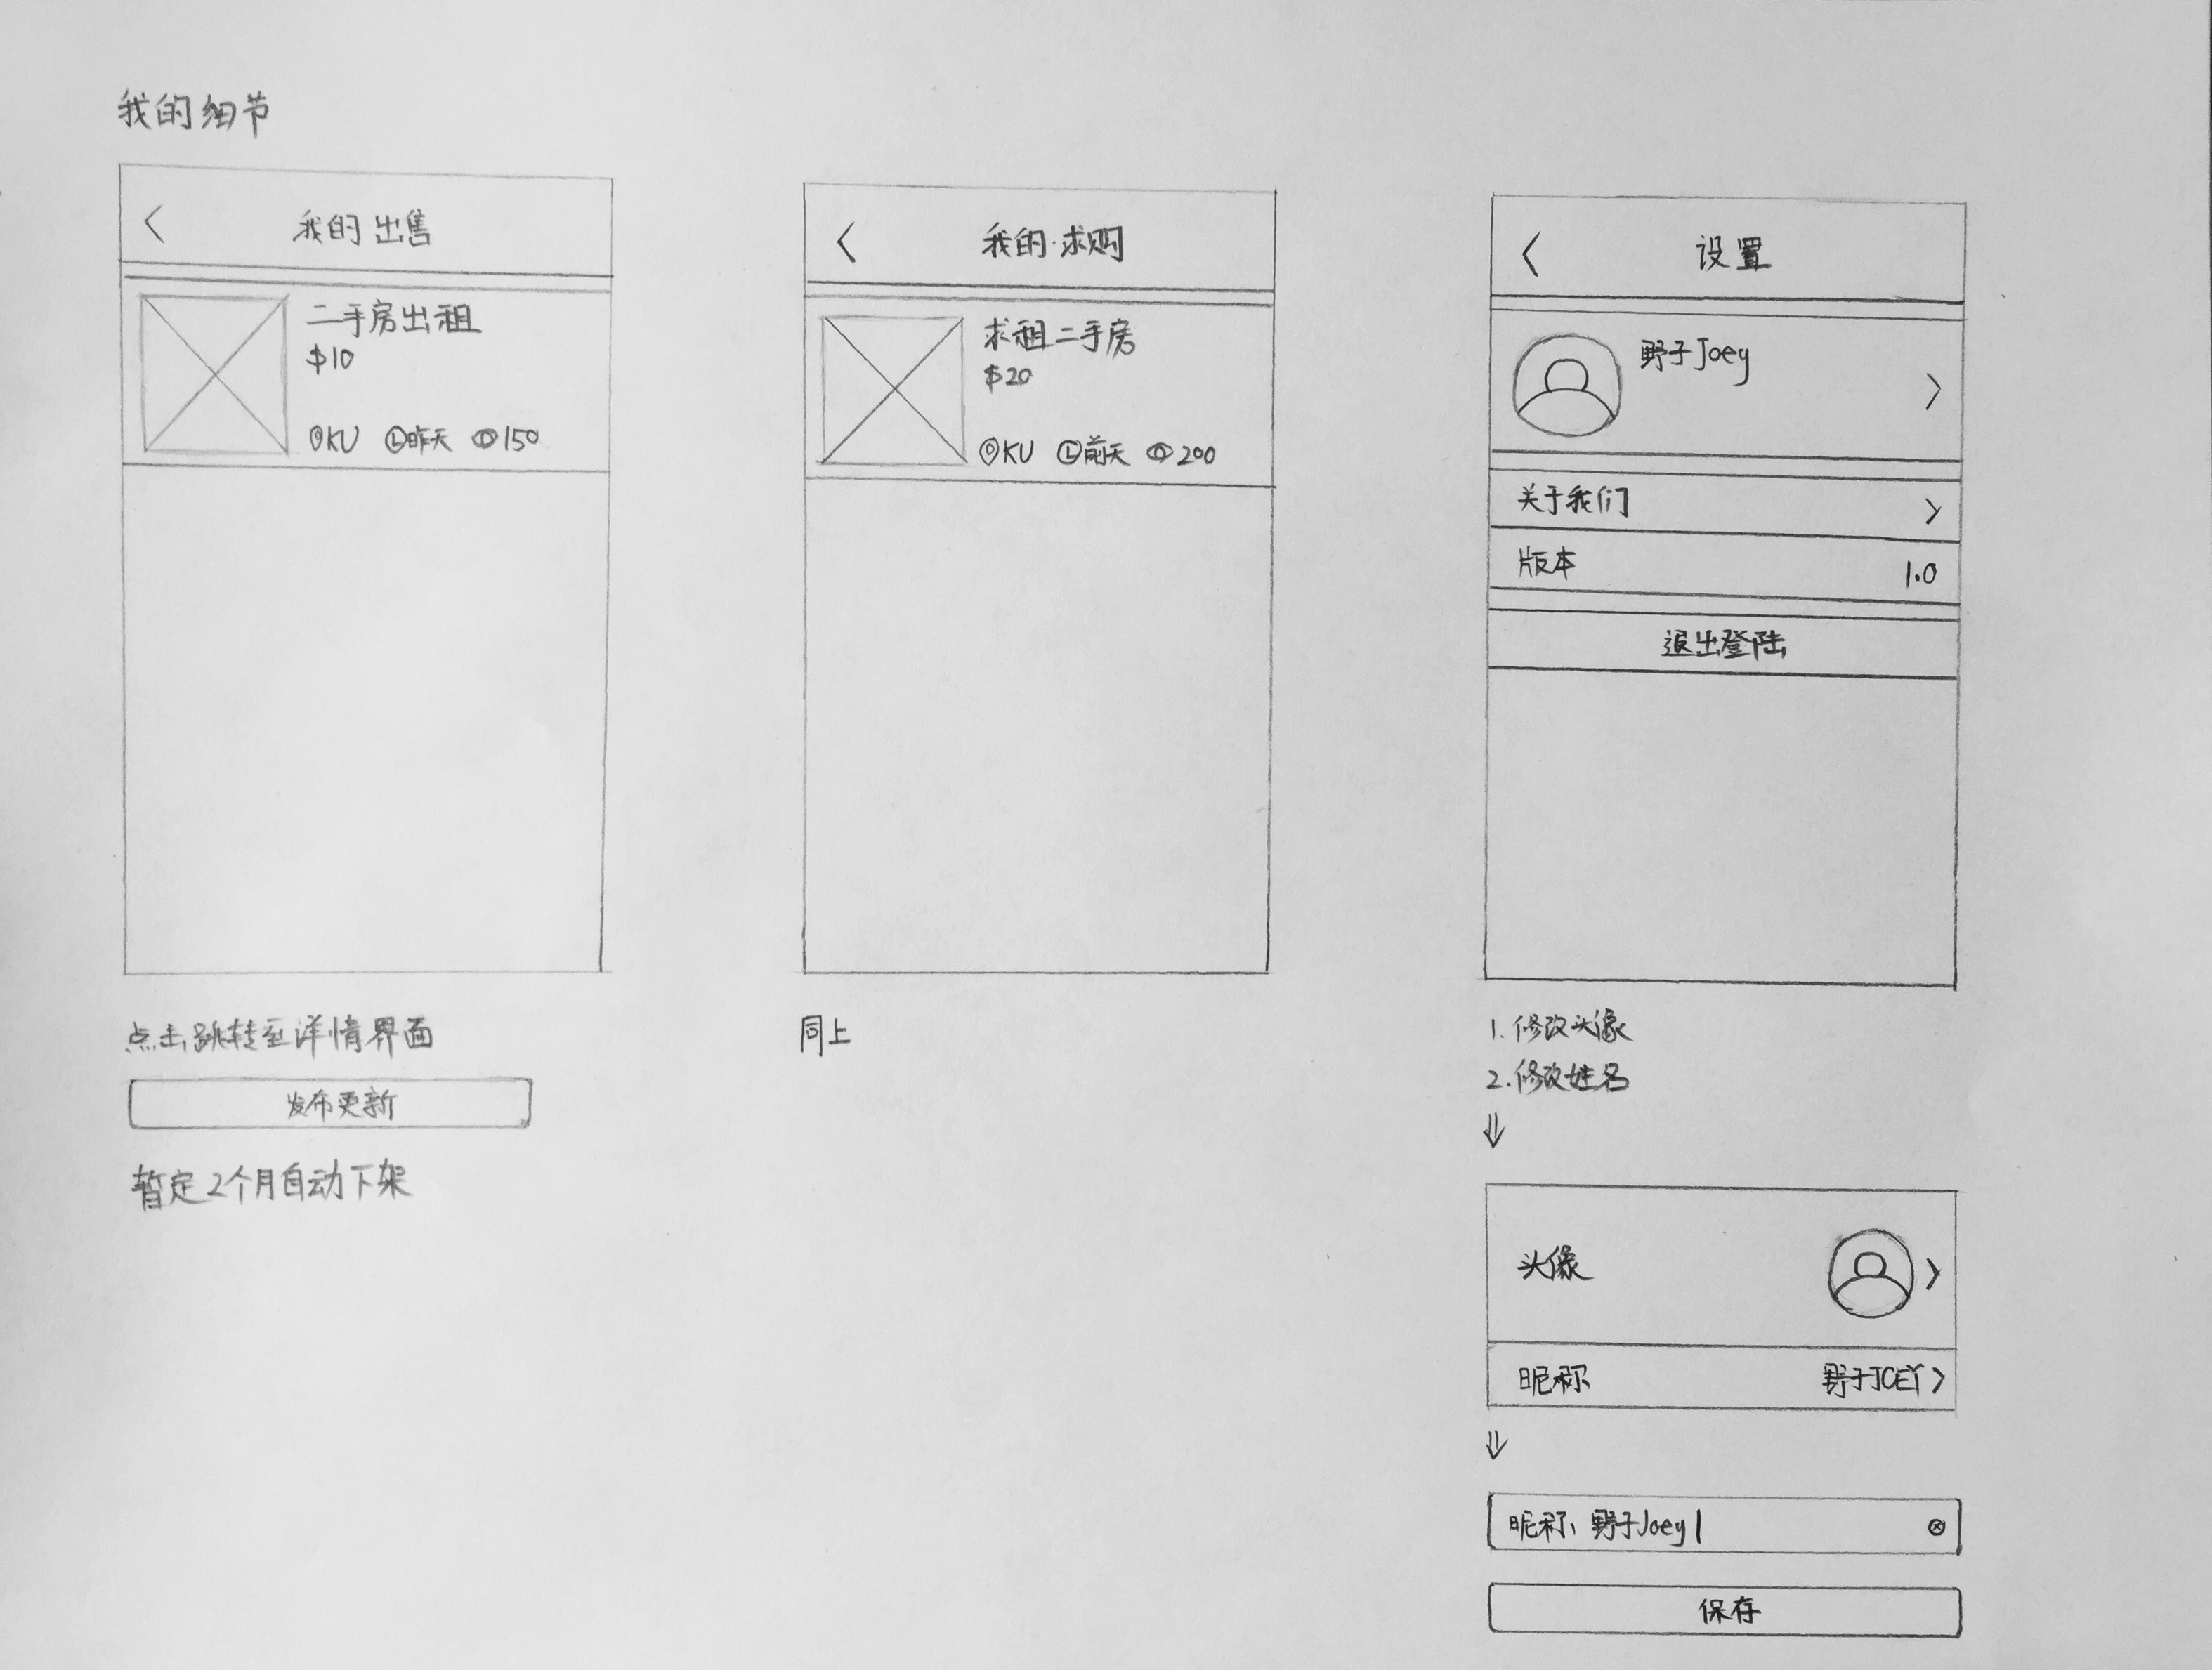 我的细节
我的出售
二手房出租
$10
KU 昨天 150
点击跳转至详情界面
发布更新
暂定2个月自动下架
我的求购
求租二手房
$20
KU 前天 200
同上
设置
野子Joey
关于我们
版本 1.0
退出登陆
1.修改头像
2.修改姓名
头像
昵称 野子JOEY
昵称: 野子Joey
保存